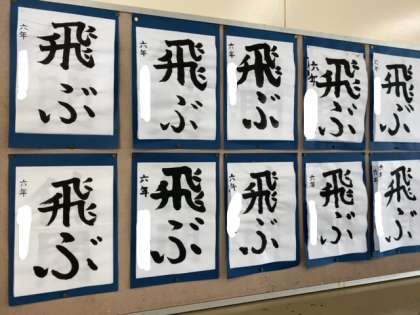 六年
飛ぶ
六年
飛ぶ
六年
飛ぶ
六年
飛ぶ
六年
飛ぶ
六年
飛ぶ
六年
飛ぶ
六年
飛ぶ
六年
飛ぶ
六年
飛ぶ